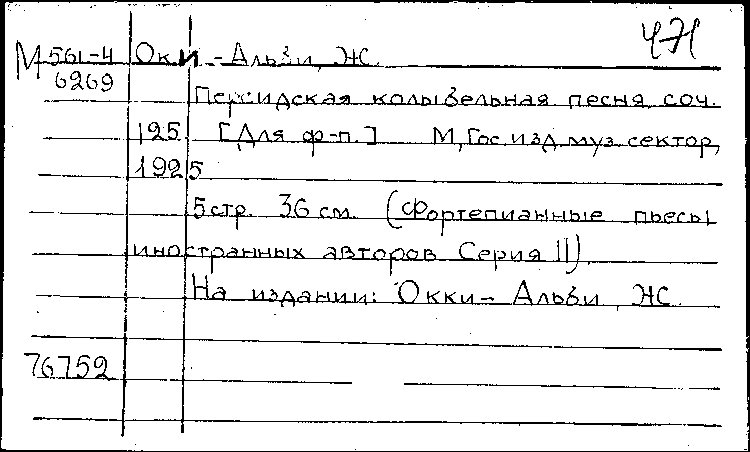 ЧЯ
М 561-4 Оки-Альби, Ж.
6269
Персидская колыбельная песня, соч.
125. [Для ф-п.] М, Гос. изд. муз. сектор,
1925
5 стр. 36 см. (Фортепианные пьесы
иностранных авторов Серия II)
На издании: Окки-Альби, Ж.
76752